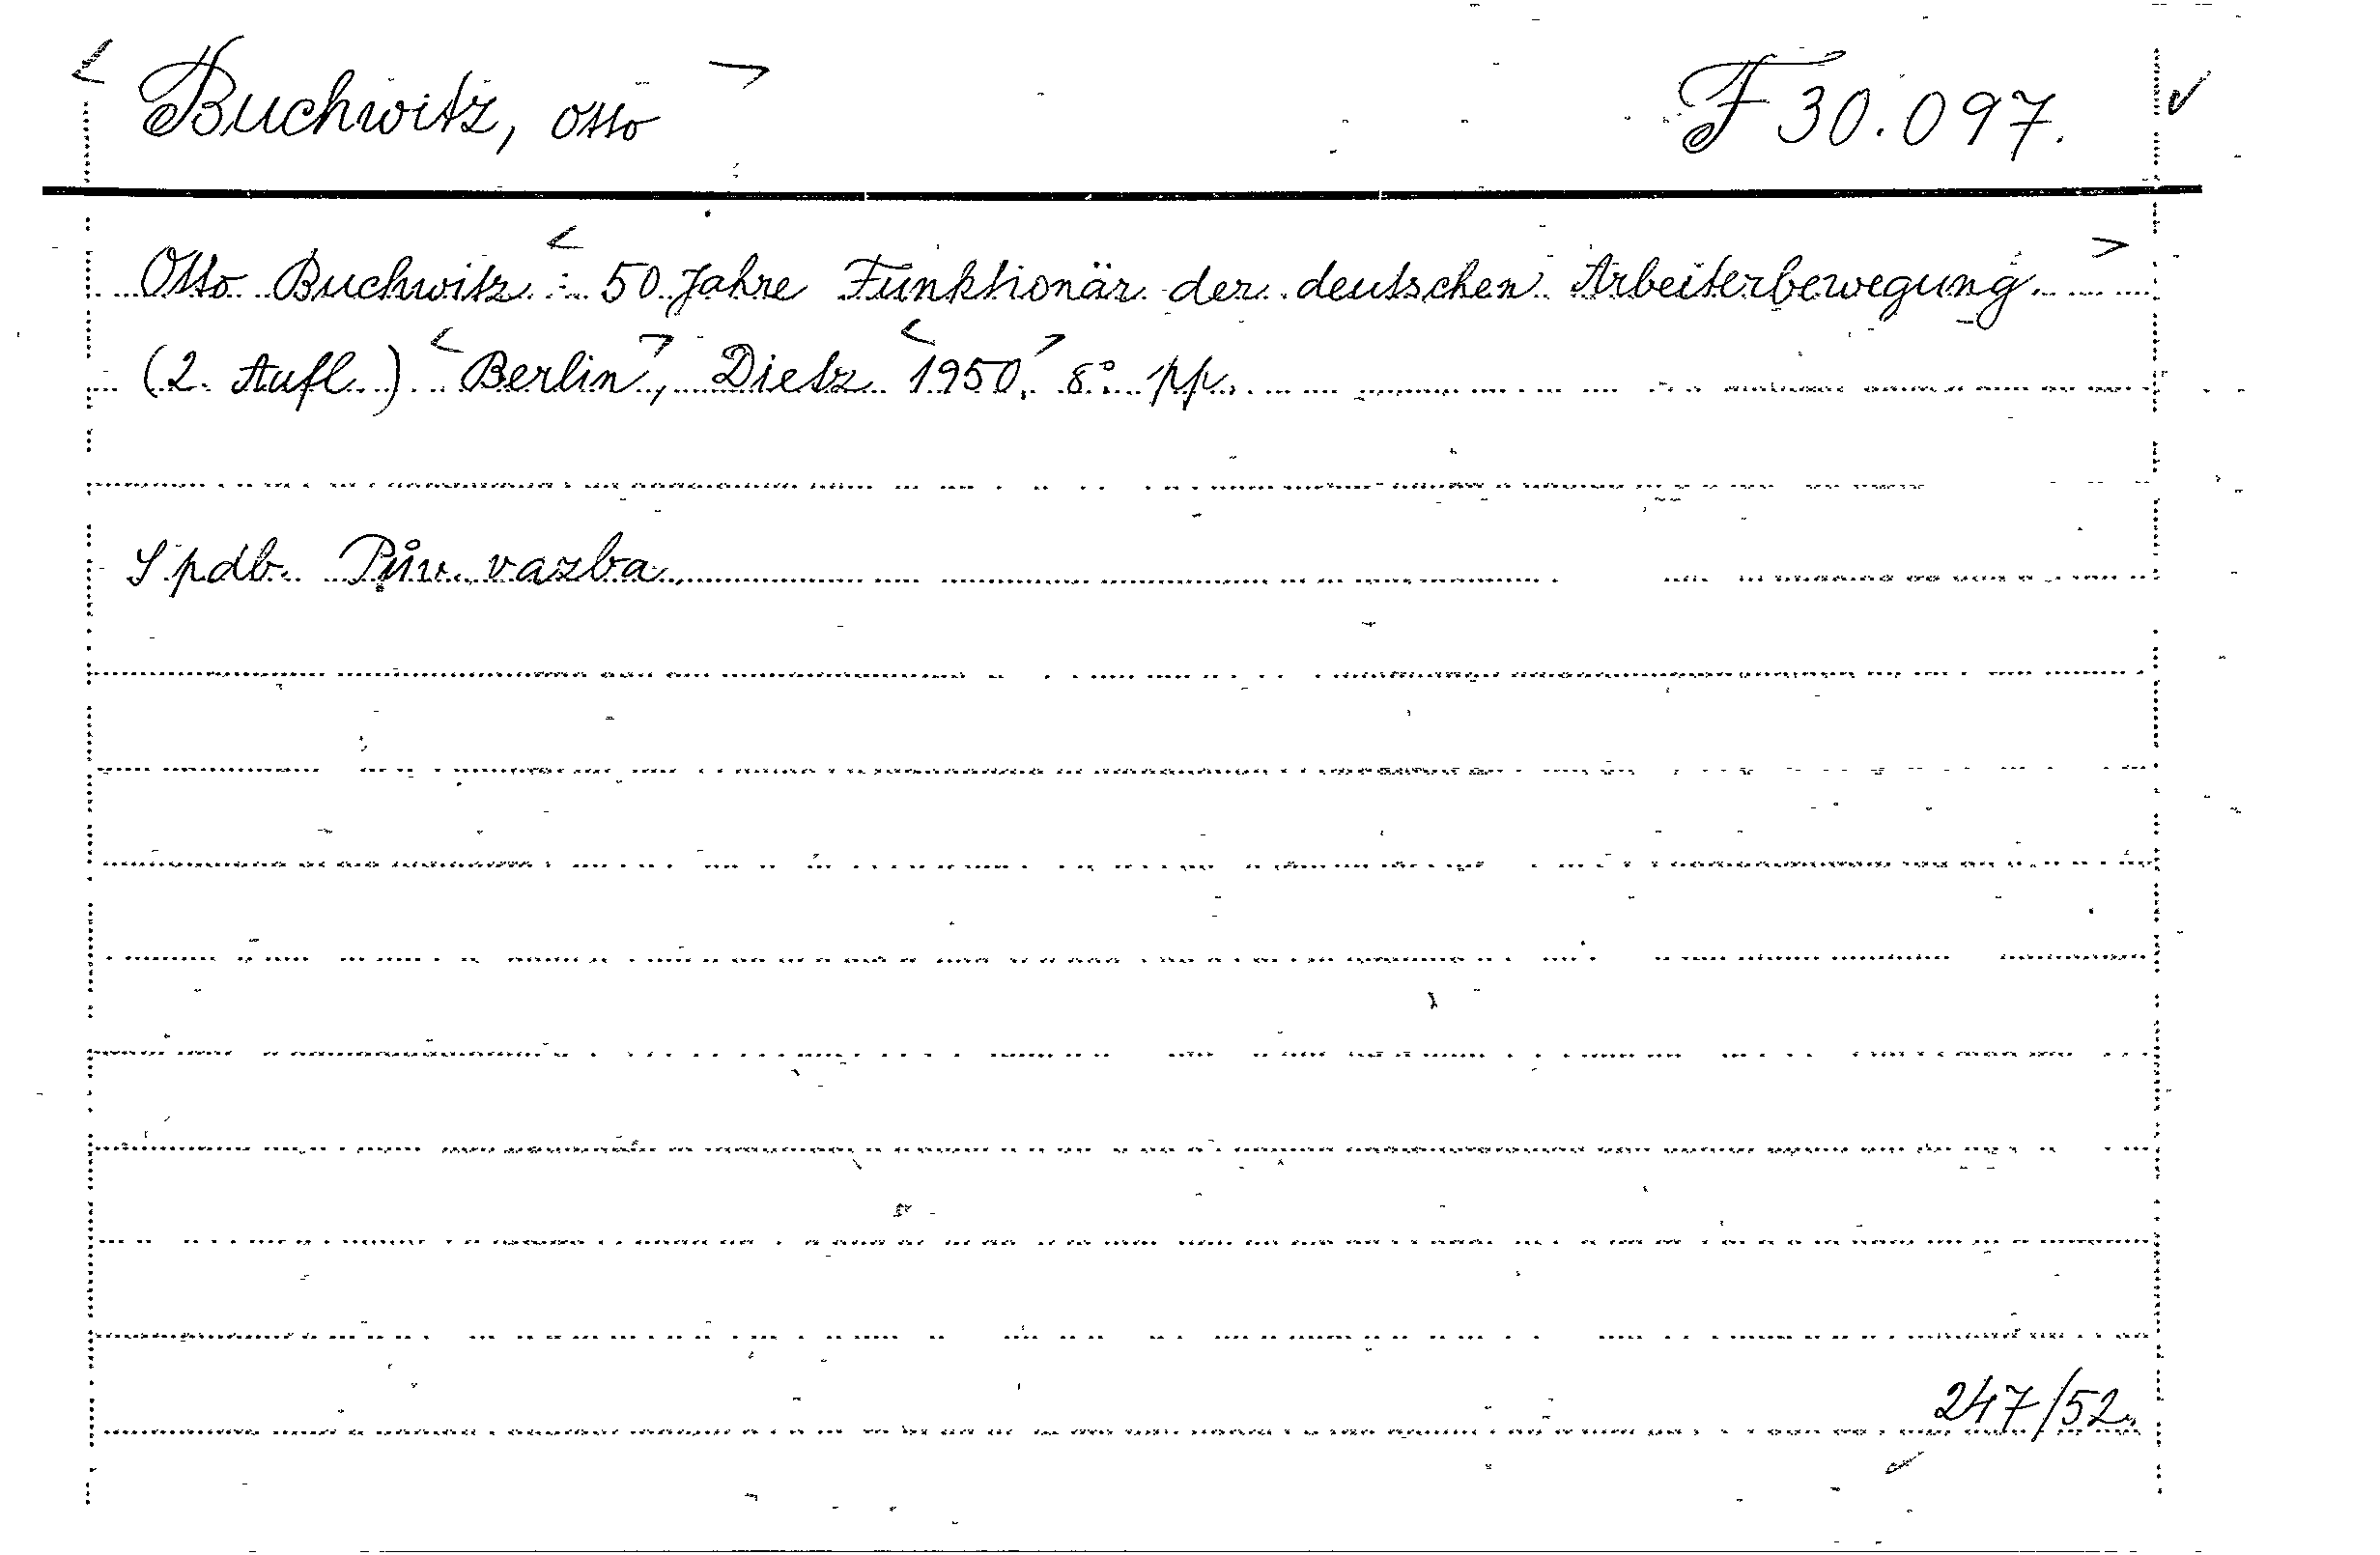 < Buchwitz, Otto > F 30.097. ✓
Otto Buchwitz: < 50 Jahre Funktionär der deutschen Arbeiterbewegung. >
(2. Aufl.) < Berlin >, Dietz < 1950 >. 8° pp.
S pdb. Pův. vazba.
247/52.